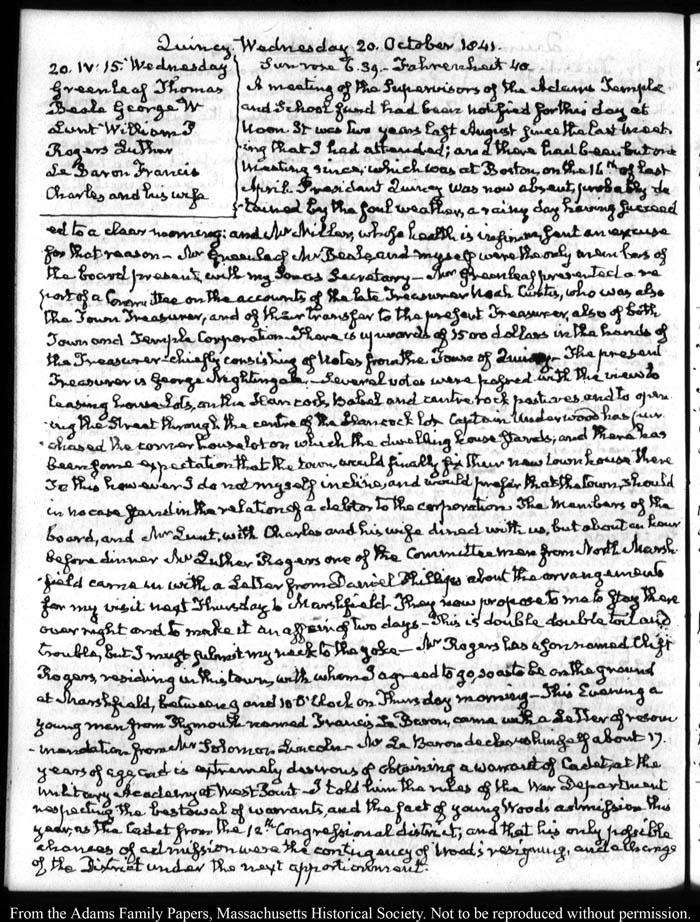 Quincy. Wednesday 20. October 1841.
20. IV: 15. Wednesday
Greenleaf Thomas
Beale George W
Lunt William P
Rogers Luther
Le Baron Francis
Charles and his wife
Sun rose 6.39. Fahrenheit 40.
A meeting of the Supervisors of the Adams Temple
and School fund had been notified for this day at
Noon. It was two years last August since the last meet-
-ing that I had attended; and there had been but one
Meeting since, which was at Boston, on the 16th of last
April. President Quincy was now absent, probably de-
-tained by the foul weather, a rainy day having succeed
ed to a clear morning; and Mr Miller, whose health is infirm, sent an excuse
for that reason – Mr Greenleaf Mr Beale, and myself were the only members of
the board present, with my Secretary – Mr Greenleaf presented a re
port of a Committee on the accounts of the late Treasurer Noah Curtis, who was also
the Town Treasurer, and of their transfer to the present Treasurer, also of both
Town and Temple Corporation. There is upwards of 1500 dollars in the hands of
the Treasurer chiefly consisting of Notes from the Town of Quincy – The present
Treasurer is George Nightingale. Several votes were passed with the view to
leasing house lots, on the Hancock, Babel and centre rock pastures and to open-
-ing the Street through the centre of the Hancock lot. Captain Underwood has pur-
-chased the corner house lot on which the dwelling house stands; and there has
been some expectation that the town would finally fix their new town house there
To this however I do not myself incline, and would prefer that the town, should
in no case stand in the relation of a debtor to the corporation. The members of the
board, and Mr Lunt, with Charles and his wife dined with us, but about an hour
before dinner Mr Luther Rogers one of the Committee men from North Marsh-
-field came in with a Letter from Daniel Phillips about the arrangements
for my visit next Thursday to Marshfield. They now propose to me to stay there
over night and to make it an affair of two days – This is double double toil and
trouble, but I must submit my neck to the yoke – Mr Rogers has a son named Clift
Rogers, residing in this town, with whom I agreed to go, so as to be on the ground
at Marshfield, between 9 and 10 O'Clock on Thursday morning – This Evening a
young man from Plymouth named Francis Le Baron, came with a Letter of recom
-mendation from Mr Solomon Lincoln – Mr Le Baron declares himself about 17.
years of age, and is extremely desirous of obtaining a warrant of Cadet, at the
military Academy at West Point – I told him the rules of the War Department
respecting the bestowal of warrants, and the fact of young Woods admission this
year, as the Cadet from the 12th Congressional district; and that his only possible
chances of admission were the contingency of Wood's resigning, and a change
of the District under the next apportionment.
From the Adams Family Papers, Massachusetts Historical Society. Not to be reproduced without permission.